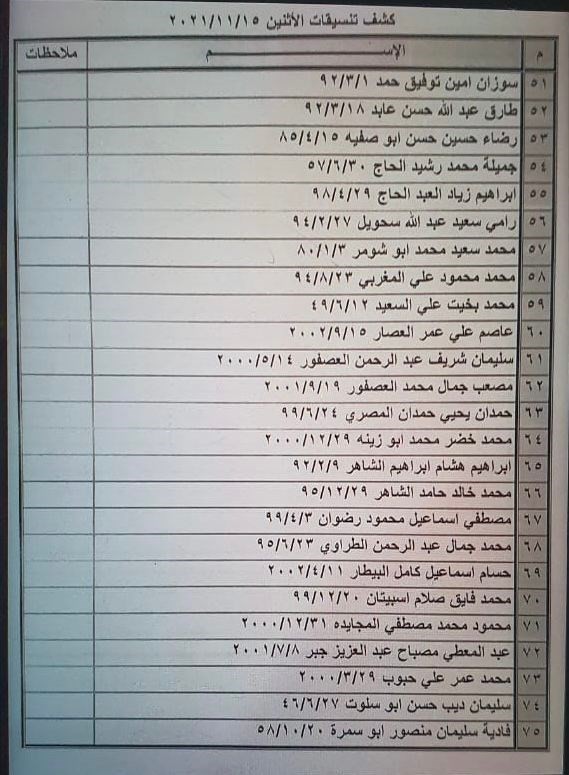 كشف تنسيقات الأثنين ٢٠٢١/١١/١٥
م الإســـــم ملاحظات
٥١ سوزان امين توفيق حمد ٩٢/٣/١
٥٢ طارق عبد الله حسن عابد ٩٢/٣/١٨
٥٣ رضاء حسين حسن ابو صفيه ٨٥/٤/١٥
٥٤ جميلة محمد رشيد الحاج ٥٧/٦/٣٠
٥٥ ابراهيم زياد العبد الحاج ٩٨/٤/٢٩
٥٦ رامي سعيد عبد الله سحويل ٩٤/٢/٢٧
٥٧ محمد سعيد محمد ابو شومر ٨٠/١/٣
٥٨ محمد محمود علي المغربي ٩٤/٨/٢٣
٥٩ محمد بخيت علي السعيد ٤٩/٦/١٢
٦٠ عاصم علي عمر العصار ٢٠٠٢/٩/١٥
٦١ سليمان شريف عبد الرحمن العصفور ٢٠٠٠/٥/١٤
٦٢ مصعب جمال محمد العصفور ٢٠٠١/٩/١٩
٦٣ حمدان يحيي حمدان المصري ٩٩/٦/٢٤
٦٤ محمد خضر محمد ابو زينه ٢٠٠٠/١٢/٢٩
٦٥ ابراهيم هشام ابراهيم الشاهر ٩٢/٢/٩
٦٦ محمد خالد حامد الشاهر ٩٥/١٢/٢٩
٦٧ مصطفي اسماعيل محمود رضوان ٩٩/٤/٣
٦٨ محمد جمال عبد الرحمن الطراوي ٩٥/٦/٢٣
٦٩ حسام اسماعيل كامل البيطار ٢٠٠٢/٤/١١
٧٠ محمد فايق صلام اسبيتان ٩٩/١٢/٢٠
٧١ محمود محمد مصطفي المجايده ٢٠٠٠/١٢/٣١
٧٢ عبد المعطي مصباح عبد العزيز جبر ٢٠٠١/٧/٨
٧٣ محمد عمر علي حبوب ٢٠٠٠/٣/٢٩
٧٤ سليمان ديب حسن ابو سلوت ٤٦/٦/٢٧
٧٥ فادية سليمان منصور ابو سمرة ٥٨/١٠/٢٠